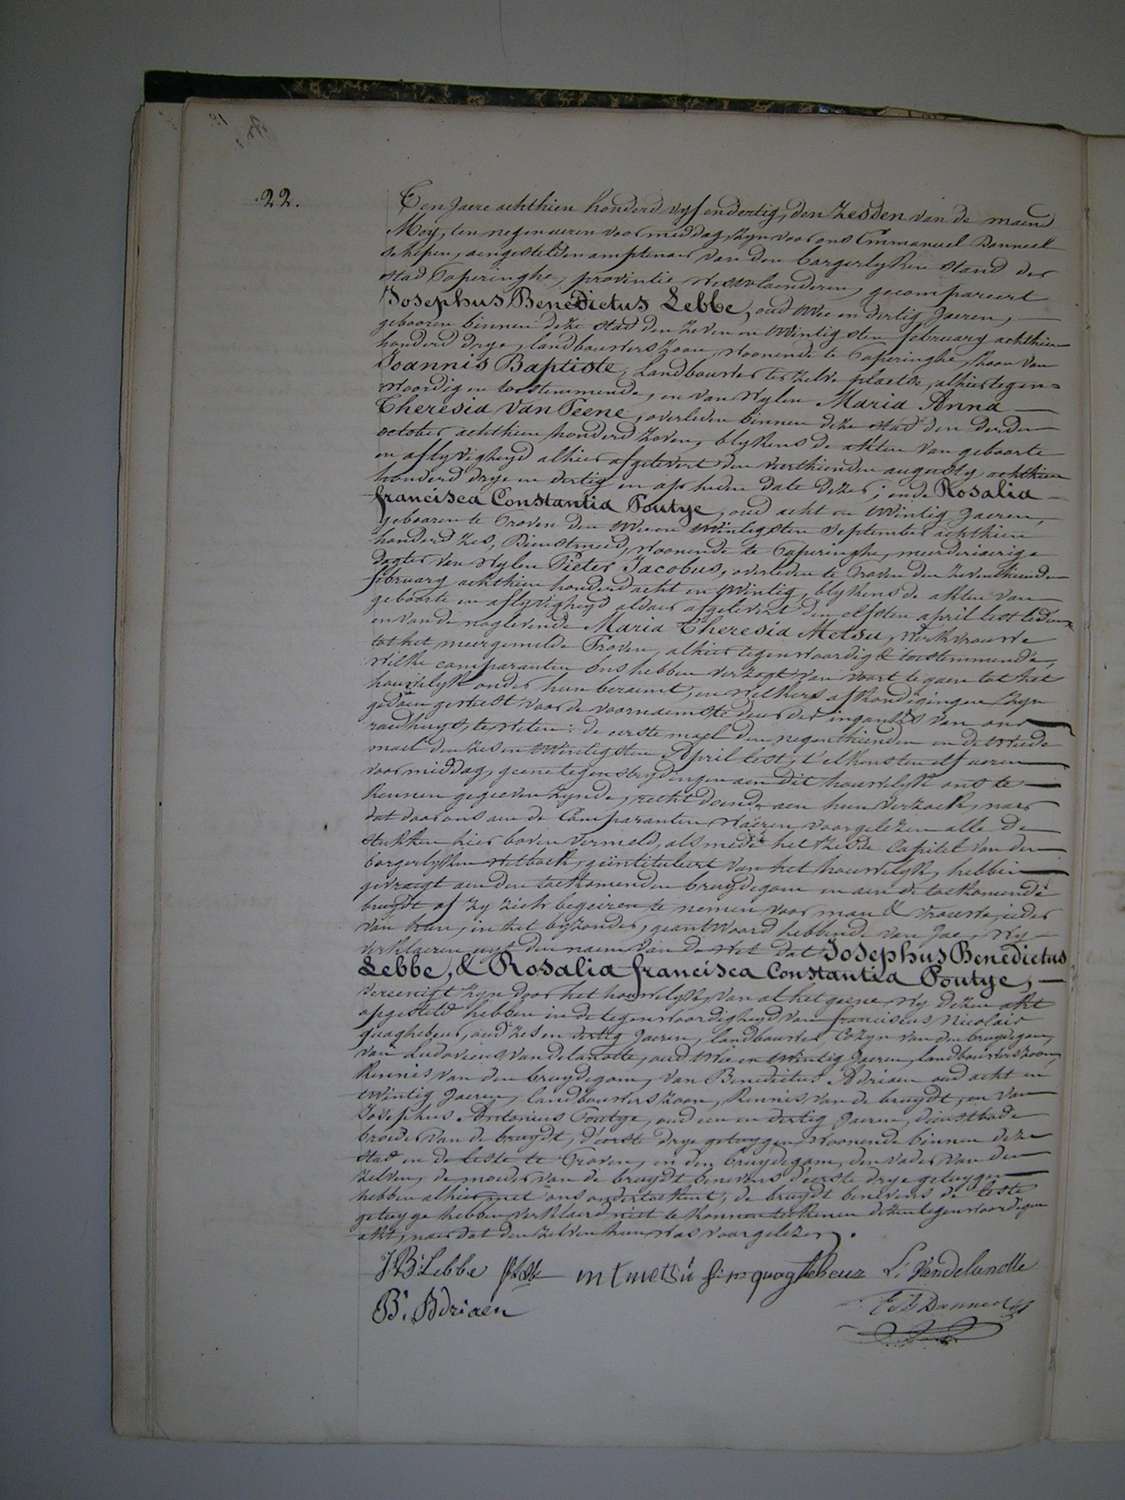 22.
Ten jaere achthien honderd vyf en dertig, den zesden van de maend
Mey, ten negen ueren voor middag, zyn voor ons Emmanuel Danneel
schepen, aengestelden amptenaer van den borgerlyken stand der
stad Poperinghe, provintie westvlaenderen, gecompareert
Josephus Benedictus Lebbe, oud twee en dertig jaeren,
gebooren binnen deze stad den zeven en twintigsten february achthien
honderd drye, landbouwers zoon, woonende te Poperinghe, zoon van
Joannis Baptiste, landbouwer ter zelve plaetse, alhier tegen=
woordig en toestemmende, en van wylen Maria Anna
Theresia Van Peene, overleden binnen deze stad den derden
october achthien honderd zeven, blykens de akten van geboorte
en aflyvigheyd alhier afgelevert den veerthienden augusty achthien
honderd drye en dertig en op heden date dezer; ende Rosalia
francisca Constantia Poutye, oud acht en twintig jaeren,
gebooren te Proven den twee en twintigsten september achthien
honderd zes, dienstmeid, woonende te Poperinghe, meerderjaerige
dogter van wylen Pieter Jacobus, overleden te Proven den zeventhienden
february achthien honderd acht en twintig, blykens de akten van
geboorte en aflyvigheyd aldaer afgelevert den elfsten april lestleden
en van de naglevende Maria Theresia Metsu, werkvrouwe
tot het meergemelde Proven, alhier tegenwoordig & toestemmende,
welke comparanten ons hebben verzogt van voort te gaen tot het
houwelyk onder hun beraemt, en welkers afkondigingen zyn
gedaen geweest voor de voornaemste deur der ingang van ons
raedhuys te weten: de eerste mael den negenthienden en de tweede
mael den zes en twintigsten April lest, t'elkensten elf ueren
voormiddag, geene tegenstrydingen aen dit houwelyk ons te
kennen gegeeven zynde, recht doende aen hun verzoek, naer
dat door ons aen de Comparanten waeren voorgelezen alle de
stukken hier boven vermeld, als mede het zesde Capitel van den
borgerlyken wetboek, geintituleert van het houwelyk, hebben
gevraegt aen den toekomenden bruydegom en aen de toekomende
bruydt of zy zich begeeren te nemen voor man & vrouw, ieder
van hun, in het byzonder, geantwoord hebbende van Jae, wy
verklaeren uyt den naem van de Wet dat Josephus Benedictus
Lebbe, & Rosalia francisca Constantia Poutye,
vereenigt zyn door het houwelyk, van al het geene wy dezen akt
opgesteld hebben in de tegenwoordigheyd van franciscus Nicolais
quaghebeur, oud zes en dertig jaeren, landbouwer, Cozyn van den bruydegom,
van Ludovicus Vandelanotte, oud twee en twintig jaeren, landbouwers zoon,
kennis van den bruydegom, van Benedictus Adriaen oud acht en
twintig jaeren, landbouwers zoon, kennis van de bruydt, en van
Josephus Antonius Poutye, oud een en dertig jaeren, dienstbode
broeder van de bruydt, d'eerste drye getuygen woonende binnen deze
stad en de leste te Proven, en den bruydegom, den vader van den
zelven, de moeder van de bruydt benevens d'eerste drye getuygen
hebben alhier met ons onderteekent, de bruydt benevens de leste
getuyge hebben verklaerd niet te konnen teekenen dezen tegenwoordigen
akt, naer dat den zelven hun was voorgelezen.
J B Lebbe m t metsu f. n. quaghebeur L. Vandelanotte
B. Adriaen Danneel